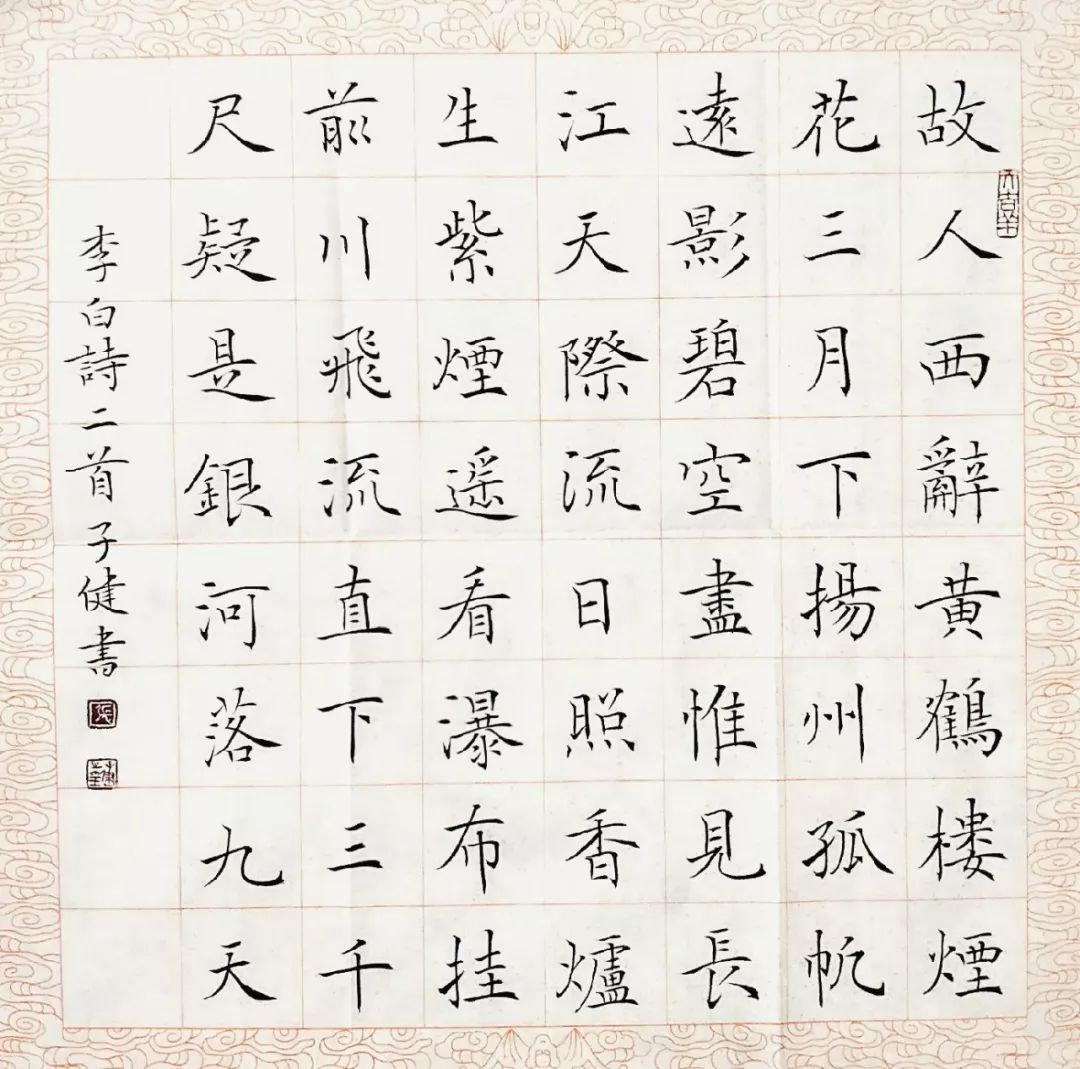 故人西辭黃鶴樓煙
花三月下揚州孤帆
遠影碧空盡惟見長
江天際流日照香爐
生紫煙遥看瀑布挂
前川飛流直下三千
尺疑是銀河落九天
李白詩二首子健書